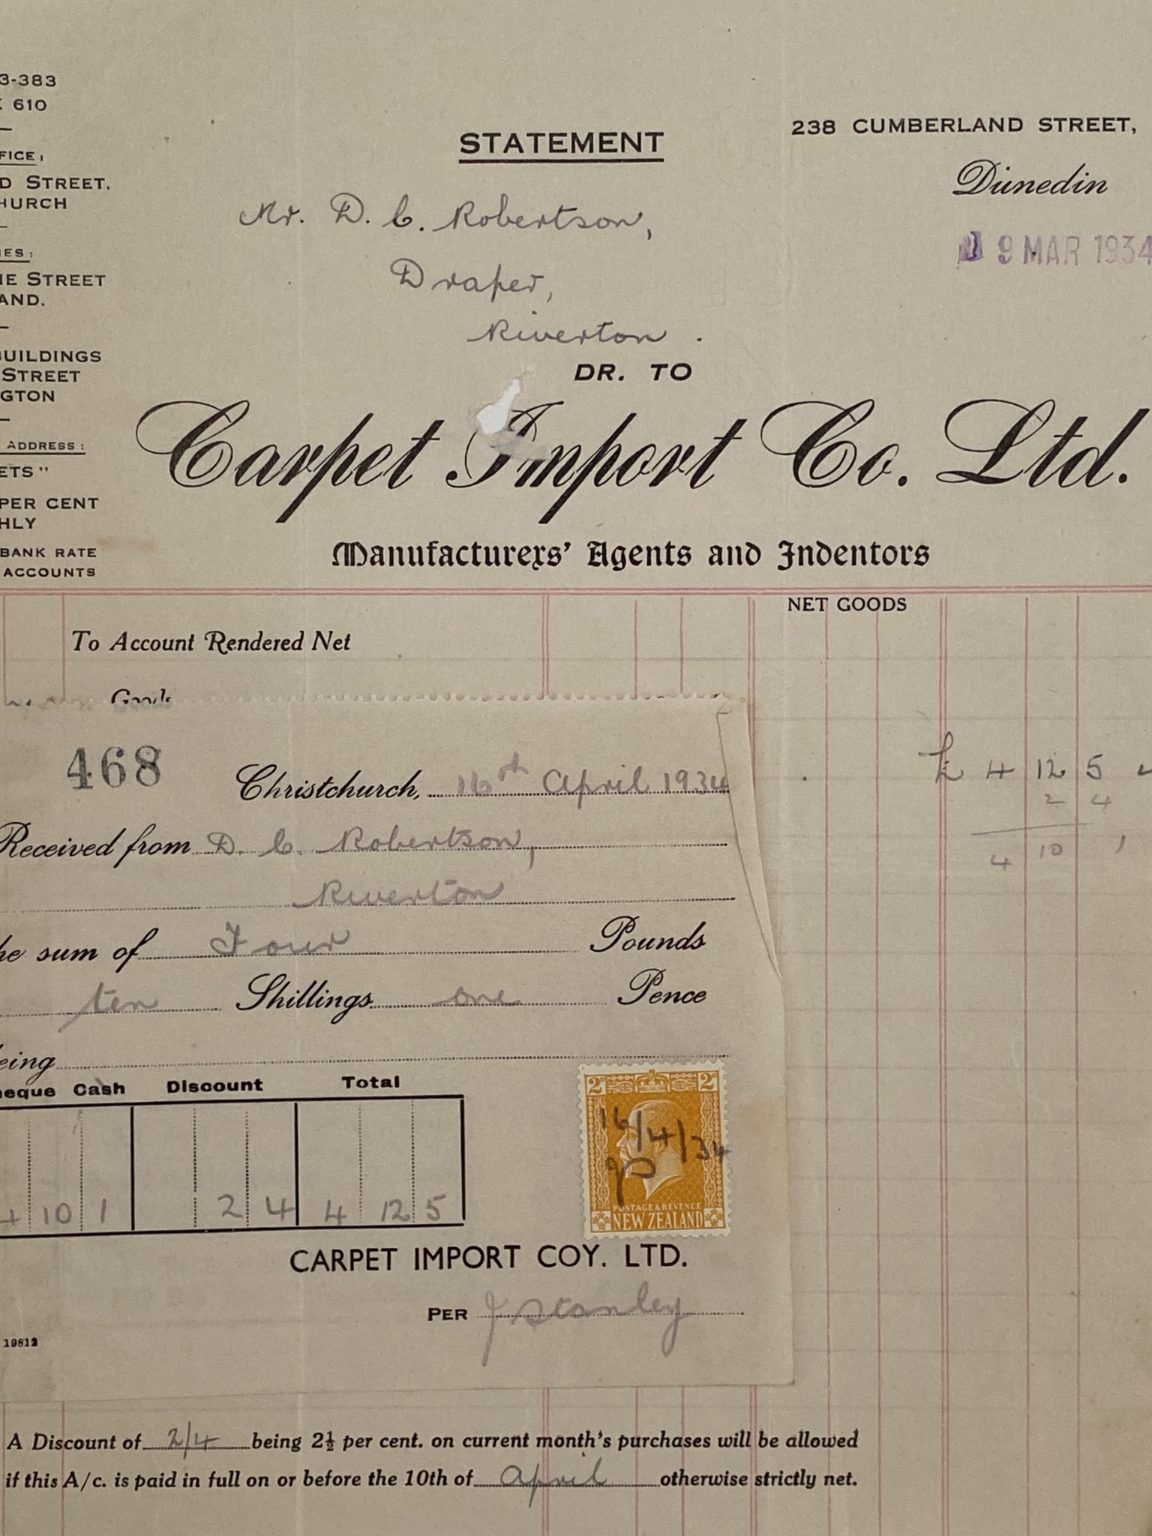 3-383
610
STATEMENT
238 CUMBERLAND STREET,
Dunedin
9 MAR 1934
FICE:
D STREET,
HURCH
Mr. D. C. Robertson,
Draper,
Riverton.
ES:
NE STREET
AND.
BUILDINGS
STREET
GTON
DR. TO
Carpet Import Co. Ltd.
ADDRESS:
ETS"
PER CENT
HLY
BANK RATE
ACCOUNTS
Manufacturers' Agents and Indentors
NET GOODS
To Account Rendered Net
Goods
£ 4 12 5
2 4
4 10 1
468
Christchurch, 16th April 1934
Received from D. C. Robertson,
Riverton
he sum of Four Pounds
ten Shillings one Pence
eing
eque Cash Discount Total
4 10 1 2 4 4 12 5
2D 2D
16/4/34
POSTAGE & REVENUE
NEW ZEALAND
CARPET IMPORT COY. LTD.
PER J Stanley
19812
A Discount of 2/4 being 2½ per cent. on current month's purchases will be allowed
if this A/c. is paid in full on or before the 10th of April otherwise strictly net.